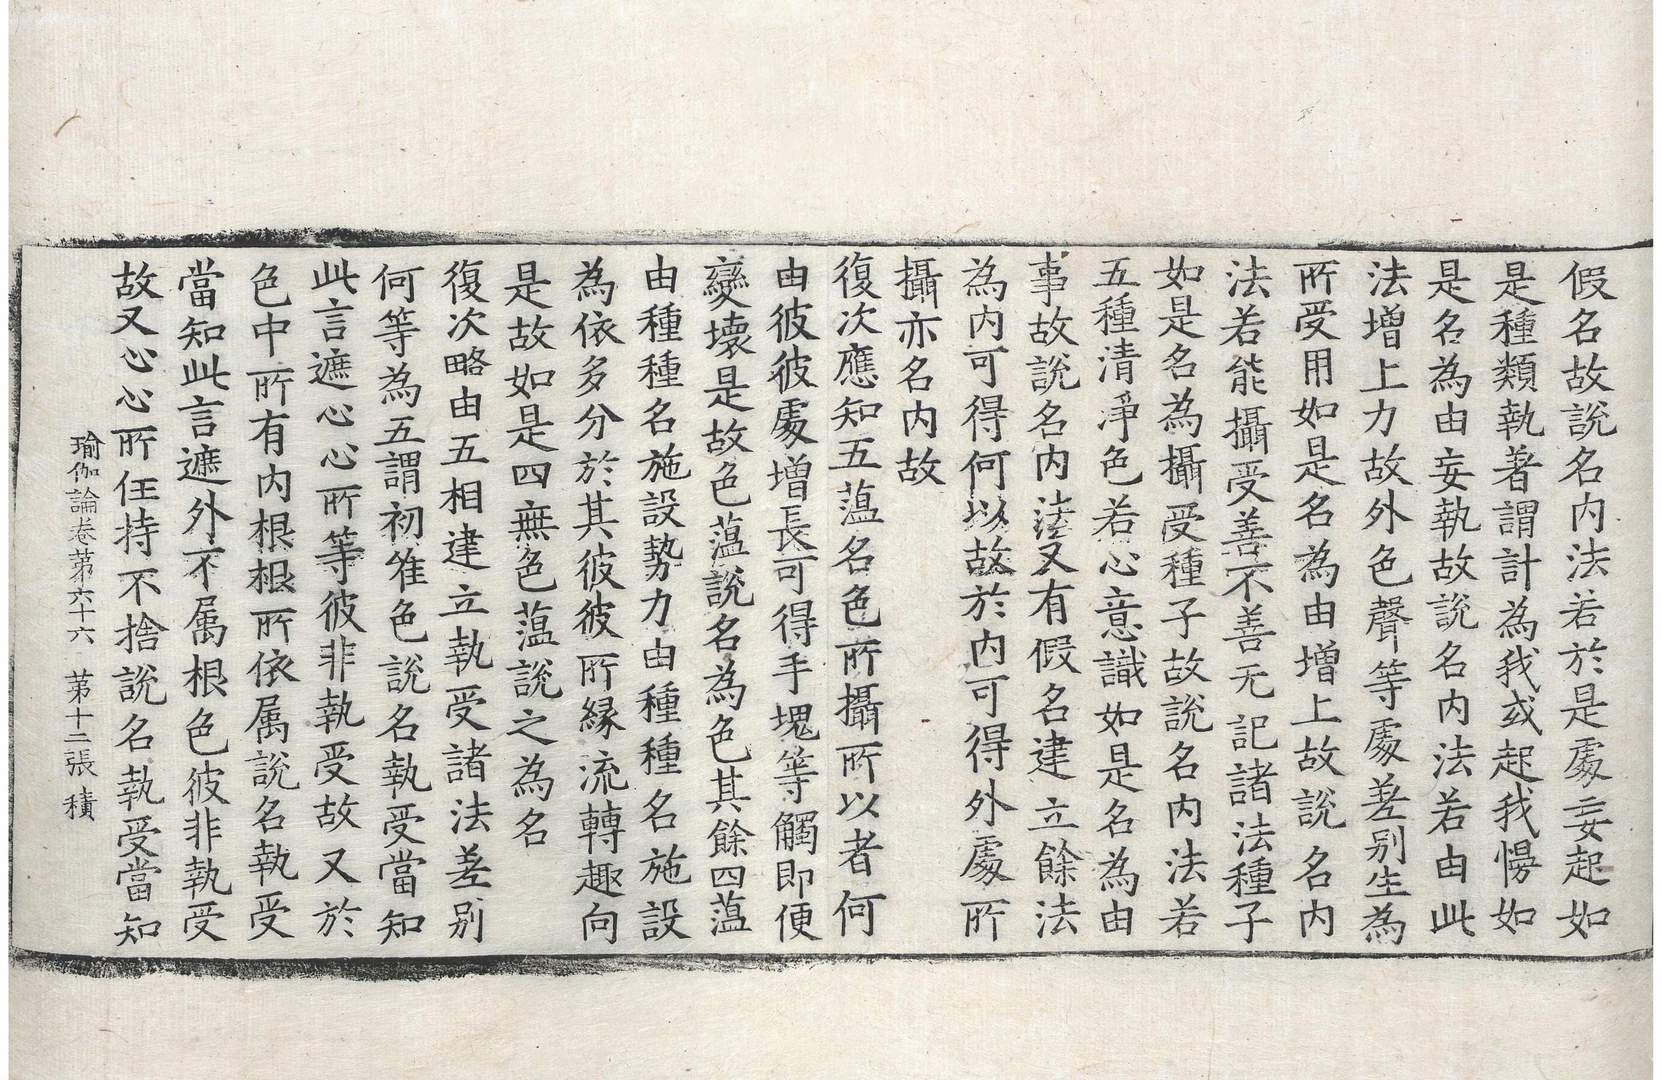 假名故說名內法若於是處妄起如
是種類執著謂計為我或起我慢如
是名為由妄執故說名內法若由此
法增上力故外色聲等處差別生為
所受用如是名為由增上故說名內
法若能攝受善不善无記諸法種子
如是名為攝受種子故說名內法若
五種清淨色若心意識如是名為由
事故說名內法又有假名建立餘法
為內可得何以故於內可得外處所
攝亦名內故
復次應知五薀名色所攝所以者何
由彼彼處增長可得手塊等觸即便
變壞是故色薀說名為色其餘四薀
由種種名施設勢力由種種名施設
為依多分於其彼彼所緣流轉趣向
是故如是四無色薀說之為名
復次略由五相建立執受諸法差別
何等為五謂初唯色說名執受當知
此言遮心心所等彼非執受故又於
色中所有內根根所依属說名執受
當知此言遮外不属根色彼非執受
故又心心所任持不捨說名執受當知
瑜伽論卷第六十六 第十二張 積